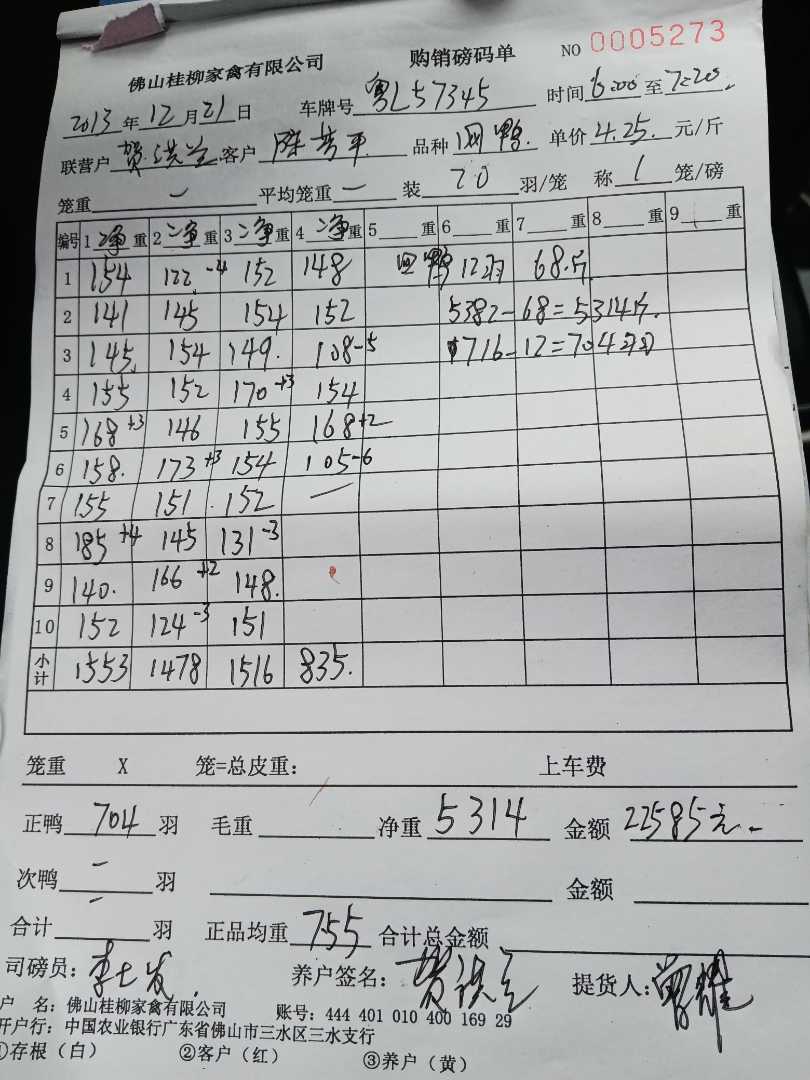 佛山桂柳家禽有限公司 购销磅码单 NO 0005273
2013年12月21日 车牌号 粤L57345 时间6:00至7:20
联营户 贺洪兰 客户 陈芳平 品种 鸭 单价4.25.元/斤
笼重 一 平均笼重 一 装 20 羽/笼 称 1 笼/磅
编号 1 净重 2 净重 3 净重 4 净重 5 重 6 重 7 重 8 重 9 重
1 154 122-4 152 148 鸭12羽 68斤
2 141 145 154 152 5382-68=5314斤.
3 145 154 149. 108-5 716-12=704
4 155 152 170+3 154
5 168+3 146 155 168+2
6 158. 173+3 154 105-6
7 155 151 152 —
8 185+4 145 131-3
9 140. 166+2 148.
10 152 124-3 151
小计 1553 1478 1516 835.
笼重 X 笼=总皮重： 上车费
正鸭 704 羽 毛重 净重 5314 金额 22585元
次鸭 一 羽 金额
合计 一 羽 正品均重 7.55 合计总金额
司磅员： 养户签名： 提货人：
户 名：佛山桂柳家禽有限公司 账号：444 401 010 400 169 29
开户行：中国农业银行广东省佛山市三水区三水支行
①存根（白） ②客户（红） ③养户（黄）